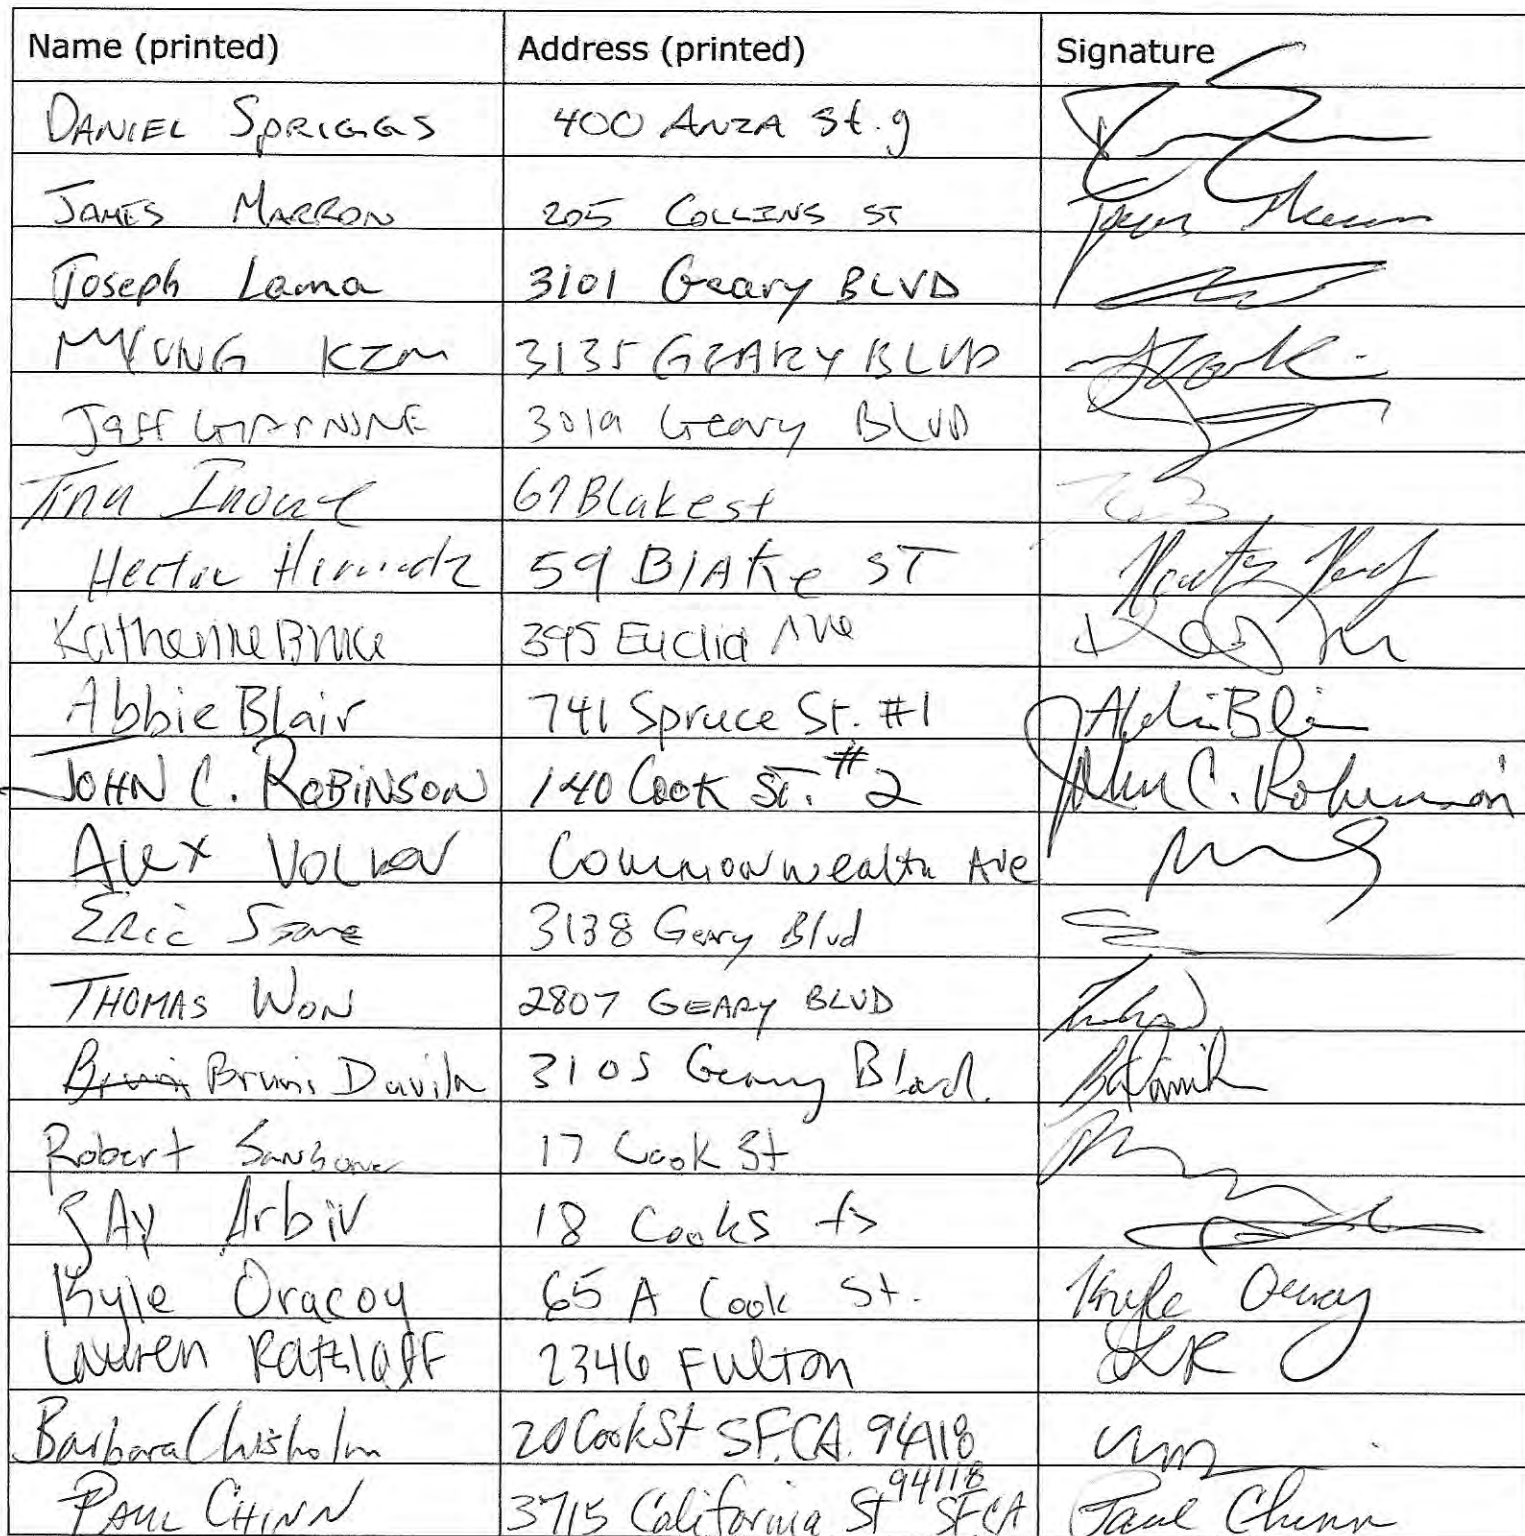 Name (printed) Address (printed) Signature
DANIEL SPRIGGS 400 ANZA St. 9
JAMES MARRON 205 COLLINS ST
Joseph Lama 3101 Geary BLVD
MYUNG KIM 3135 GEARY BLVD
Jeff 3019 Geary BLVD
Tina Inoue 67 Blake st
Hector 59 BlAKe ST
Katherine Bruce 395 Euclid Ave
Abbie Blair 741 Spruce St. #1 Abbie Blair
JOHN C. ROBINSON 140 Cook ST. #2 John C. Robinson
Alex Volkov Commonwealth Ave
Eric Stone 3138 Geary Blvd
THOMAS WON 2807 GEARY BLVD
Bruni Davila 3105 Geary Blvd.
Robert Sansone 17 Cook St
Arbiv 18 Cooks ts
Kyle Oracoy 65 A Cook St. Kyle Oracoy
Lauren Ratzlaff 2346 Fulton LR
Barbara Chisholm 20 Cook St SF. CA. 94118
PAUL CHINN 3715 California St 94118 SF CA Paul Chinn